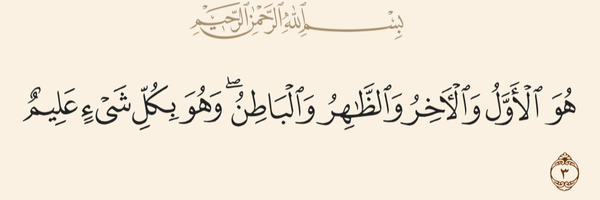 بِسْمِ ٱللَّهِ ٱلرَّحْمَٰنِ ٱلرَّحِيمِ
هُوَ ٱلْأَوَّلُ وَٱلْـَٔاخِرُ وَٱلظَّـٰهِرُ وَٱلْبَاطِنُ ۖ وَهُوَ بِكُلِّ شَىْءٍ عَلِيمٌ
٣